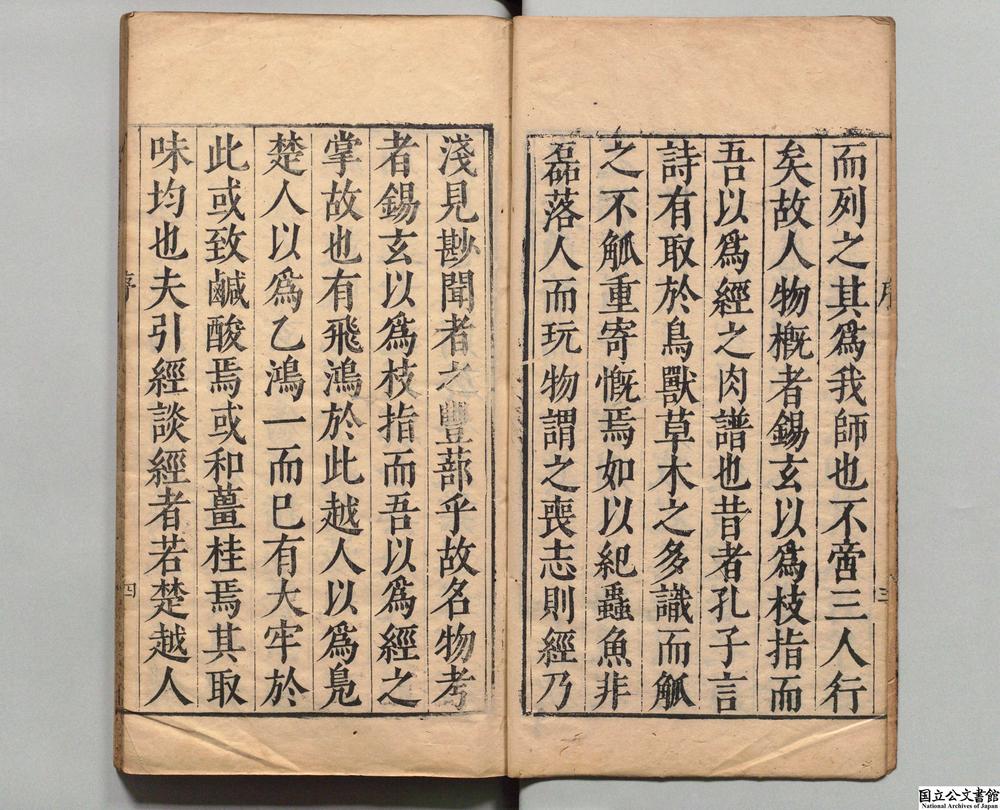 而列之其爲我師也不啻三人行
矣故人物槪者錫玄以爲枝指而
吾以爲經之肉譜也昔者孔子言
詩有取於鳥獸草木之多識而觚
之不觚重寄慨焉如以紀蟲魚非
磊落人而玩物謂之喪志則經乃
序
三
淺見尠聞者之豐蔀乎故名物考
者錫玄以爲枝指而吾以爲經之
掌故也有飛鴻於此越人以爲鳧
楚人以爲乙鴻一而已有大牢於
此或致鹹酸焉或和薑桂焉其取
味均也夫引經談經者若楚越人
序
四
国立公文書館
National Archives of Japan